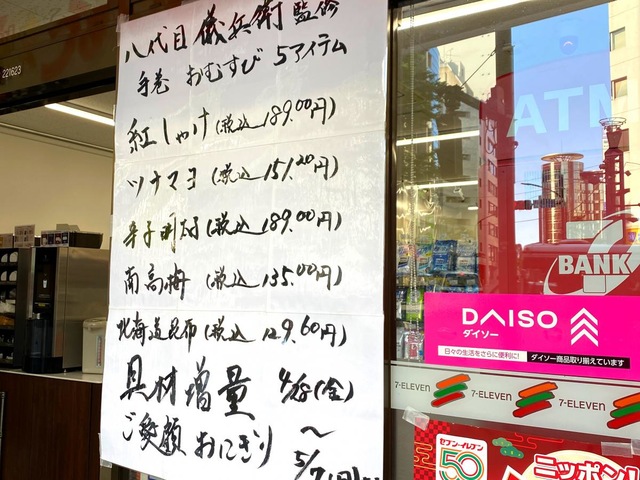 八代目 儀兵衛 監修
手巻 おむすび 5アイテム
紅しゃけ (税込 189.00円)
ツナマヨ (税込 151.20円)
辛子明太子 (税込 189.00円)
南高梅 (税込 135.00円)
北海道昆布 (税込 129.60円)
具材増量
ご愛顧 おにぎり
4/25(金)
～
5/7
221623
ATM
BANK
DAISO
ダイソー
日々の生活をさらに便利に!
ダイソー商品取り揃えています
7-ELEVEN
7-ELEVEN
7-ELEVEN
セブン-イレブン
50
ニッポン